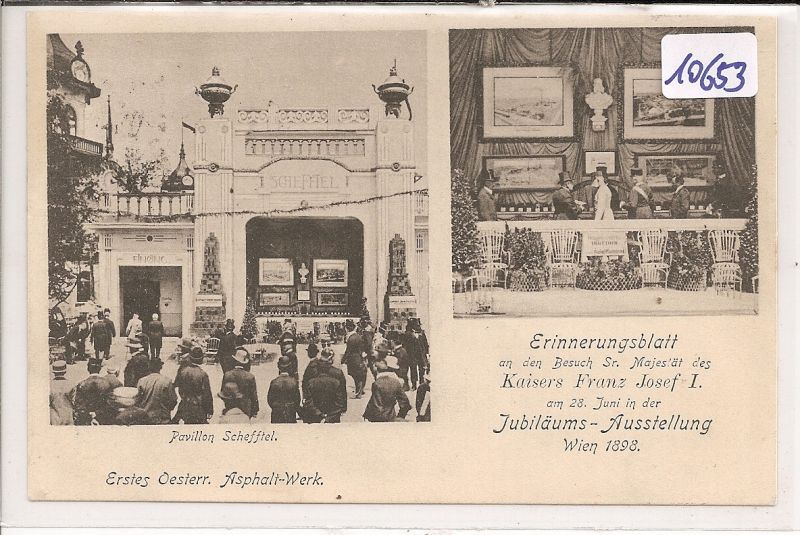 10653
SCHEFFTEL
EINGANG
Pavillon Schefftel.
Erstes Oesterr. Asphalt-Werk.
Erinnerungsblatt
an den Besuch Sr. Majestät des
Kaisers Franz Josef I.
am 28. Juni in der
Jubiläums-Ausstellung
Wien 1898.